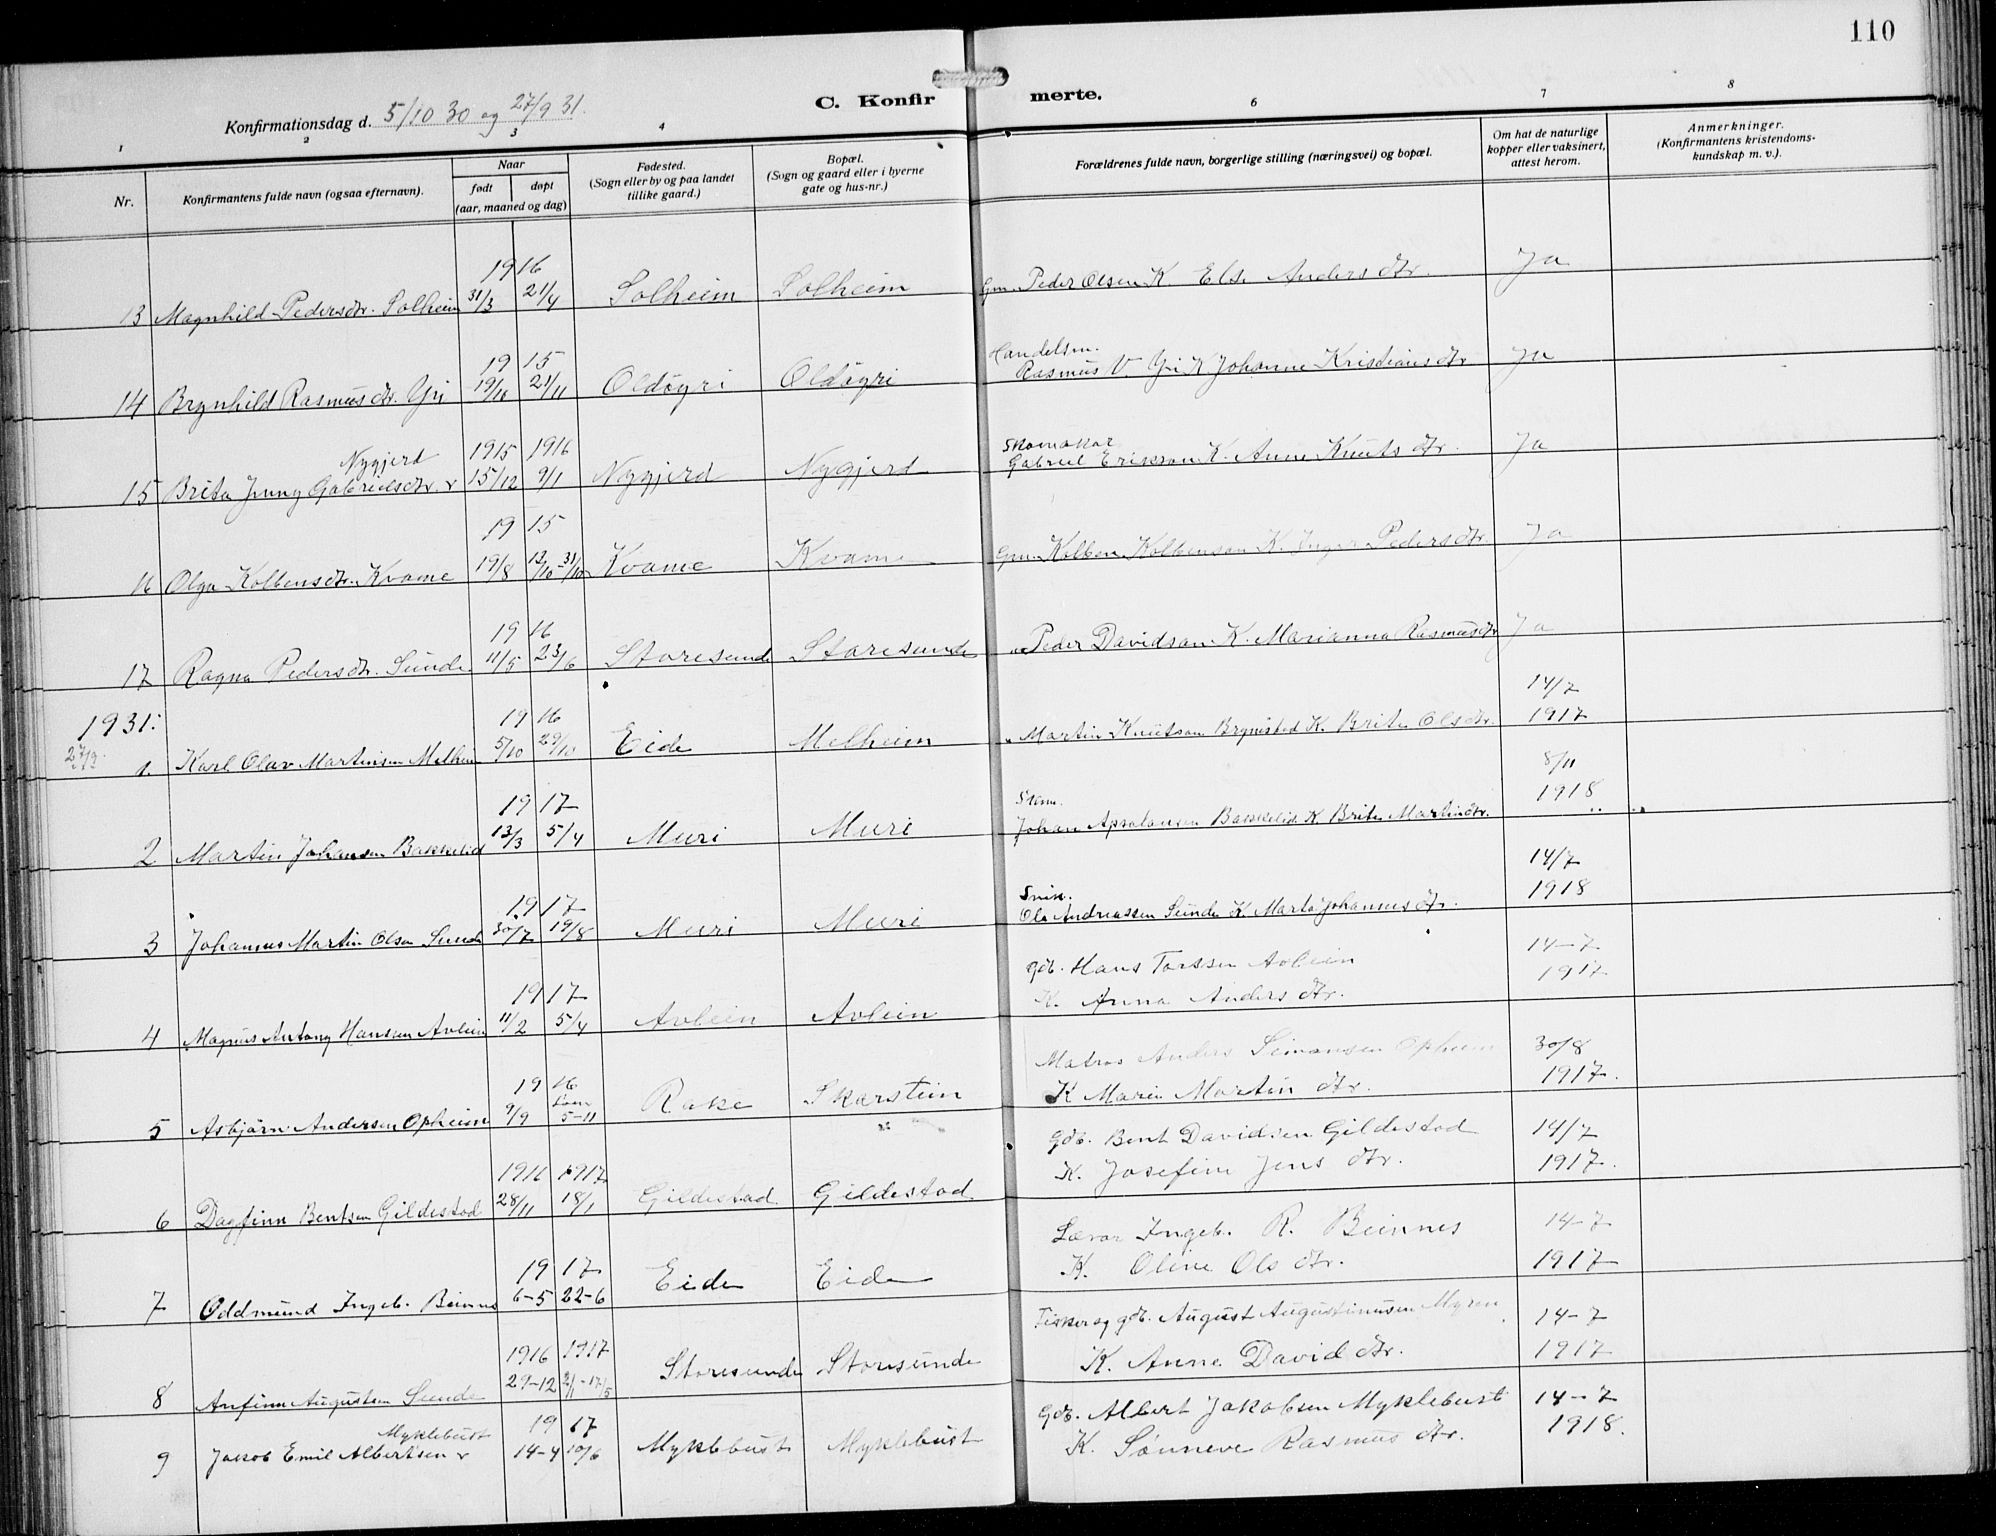 110
C. Konfirmerte.
Konfirmationsdag d. 5/10 30 og 27/9 31.
1 2 3 4 6 7 8
Nr.
Konfirmantens fulde navn (ogsaa efternavn).
Naar
født døpt
(aar, maaned og dag)
Fødested.
(Sogn eller by og paa landet
tillike gaard.)
Bopæl.
(Sogn og gaard eller i byerne
gate og hus-nr.)
Forældrenes fulde navn, borgerlige stilling (næringsvei) og bopæl.
Om hat de naturlige
kopper eller vaksinert,
attest herom.
Anmerkninger.
(Konfirmantens kristendoms-
kundskap m. v.).
1916
13 Magnhild Pedersdtr. Solheim 31/3 21/4 Solheim Solheim Gm. Peder Olsen K. Else Andersdtr. Ja
1915
Handelsm.
14 Brynhild Rasmusdtr. Yri 19/10 21/11 Oldöyri Oldöyri Rasmus V. Yri K Johanne Kristiansdtr Ja
Nygjerd 1915 1916 Skomakar
15 Brita Jenny Gabrielsdtr. v 15/12 9/1 Nygjerd Nygjerd Gabriel Erikson K. Anne Knutsdtr. Ja
1915
16 Olga Kolbensdtr. Kvame 19/8 12/10-31/10 Kvame Kvame Gm. Kolben Kolbenson K. Inger Pedersdtr. Ja
1916
17 Ragna Pedersdtr. Sunde 11/5 23/6 Storesunde Storesunde " Peder Davidson K. Marianna Rasmusdtr Ja
1931: 1916 14/7
27/9 1. Karl Olav Martinsen Melheim 5/10 29/10 Eide Melheim " Martin Knutson Brynestad K. Brita Olsdtr. 1917
1917 8/11
Stenm. 1918
2 Martin Johansen Bakkelid 13/3 5/4 Muri Muri Johan Apsalonsen Bakkelid K. Brita Martindtr.
1917 14/7
Snik. 1918
3 Johannes Martin Olsen Sunde 30/7 19/8 Muri Muri Ola Andreassen Sunde K Marta Johannesdtr.
1917 gdb. Hans Torssen Avlein 14-7
4 Magnus Antony Hansen Avlein 11/2 5/4 Avlein Avlein K. Anna Andersdtr. 1917
1916 Matros Anders Simonsen Opheim 30/8
5 Asbjörn Andersen Opheim 9/9 5-11 Rake Skarstein K Marie Martindtr. 1917.
1916 1917 gdb. Bent Davidsen Gildestad 14/7
6 Dagfinn Bentsen Gildestad 28/11 18/1 Gildestad Gildestad K. Josefine Jensdtr. 1917.
1917 Lærar Ingeb. R. Beinnes 14-7
7 Oddmund Ingeb. Beinnes 6-5 22-6 Eide Eide K. Oline Olsdtr. 1917
1916 1917 Fisker og gdb. August Augustinusen Myren 14-7
8 Anfinn Augustsen Sunde 29-12 2/1-17/5 Storesunde Storesunde K. Anne Daviddtr. 1917
Myklebust 1917 Gdb. Albert Jakobsen Myklebust 14-7
9 Jakob Emil Albertsen v 14-4 10/6 Myklebust Myklebust K. Sönneve Rasmusdtr. 1918.